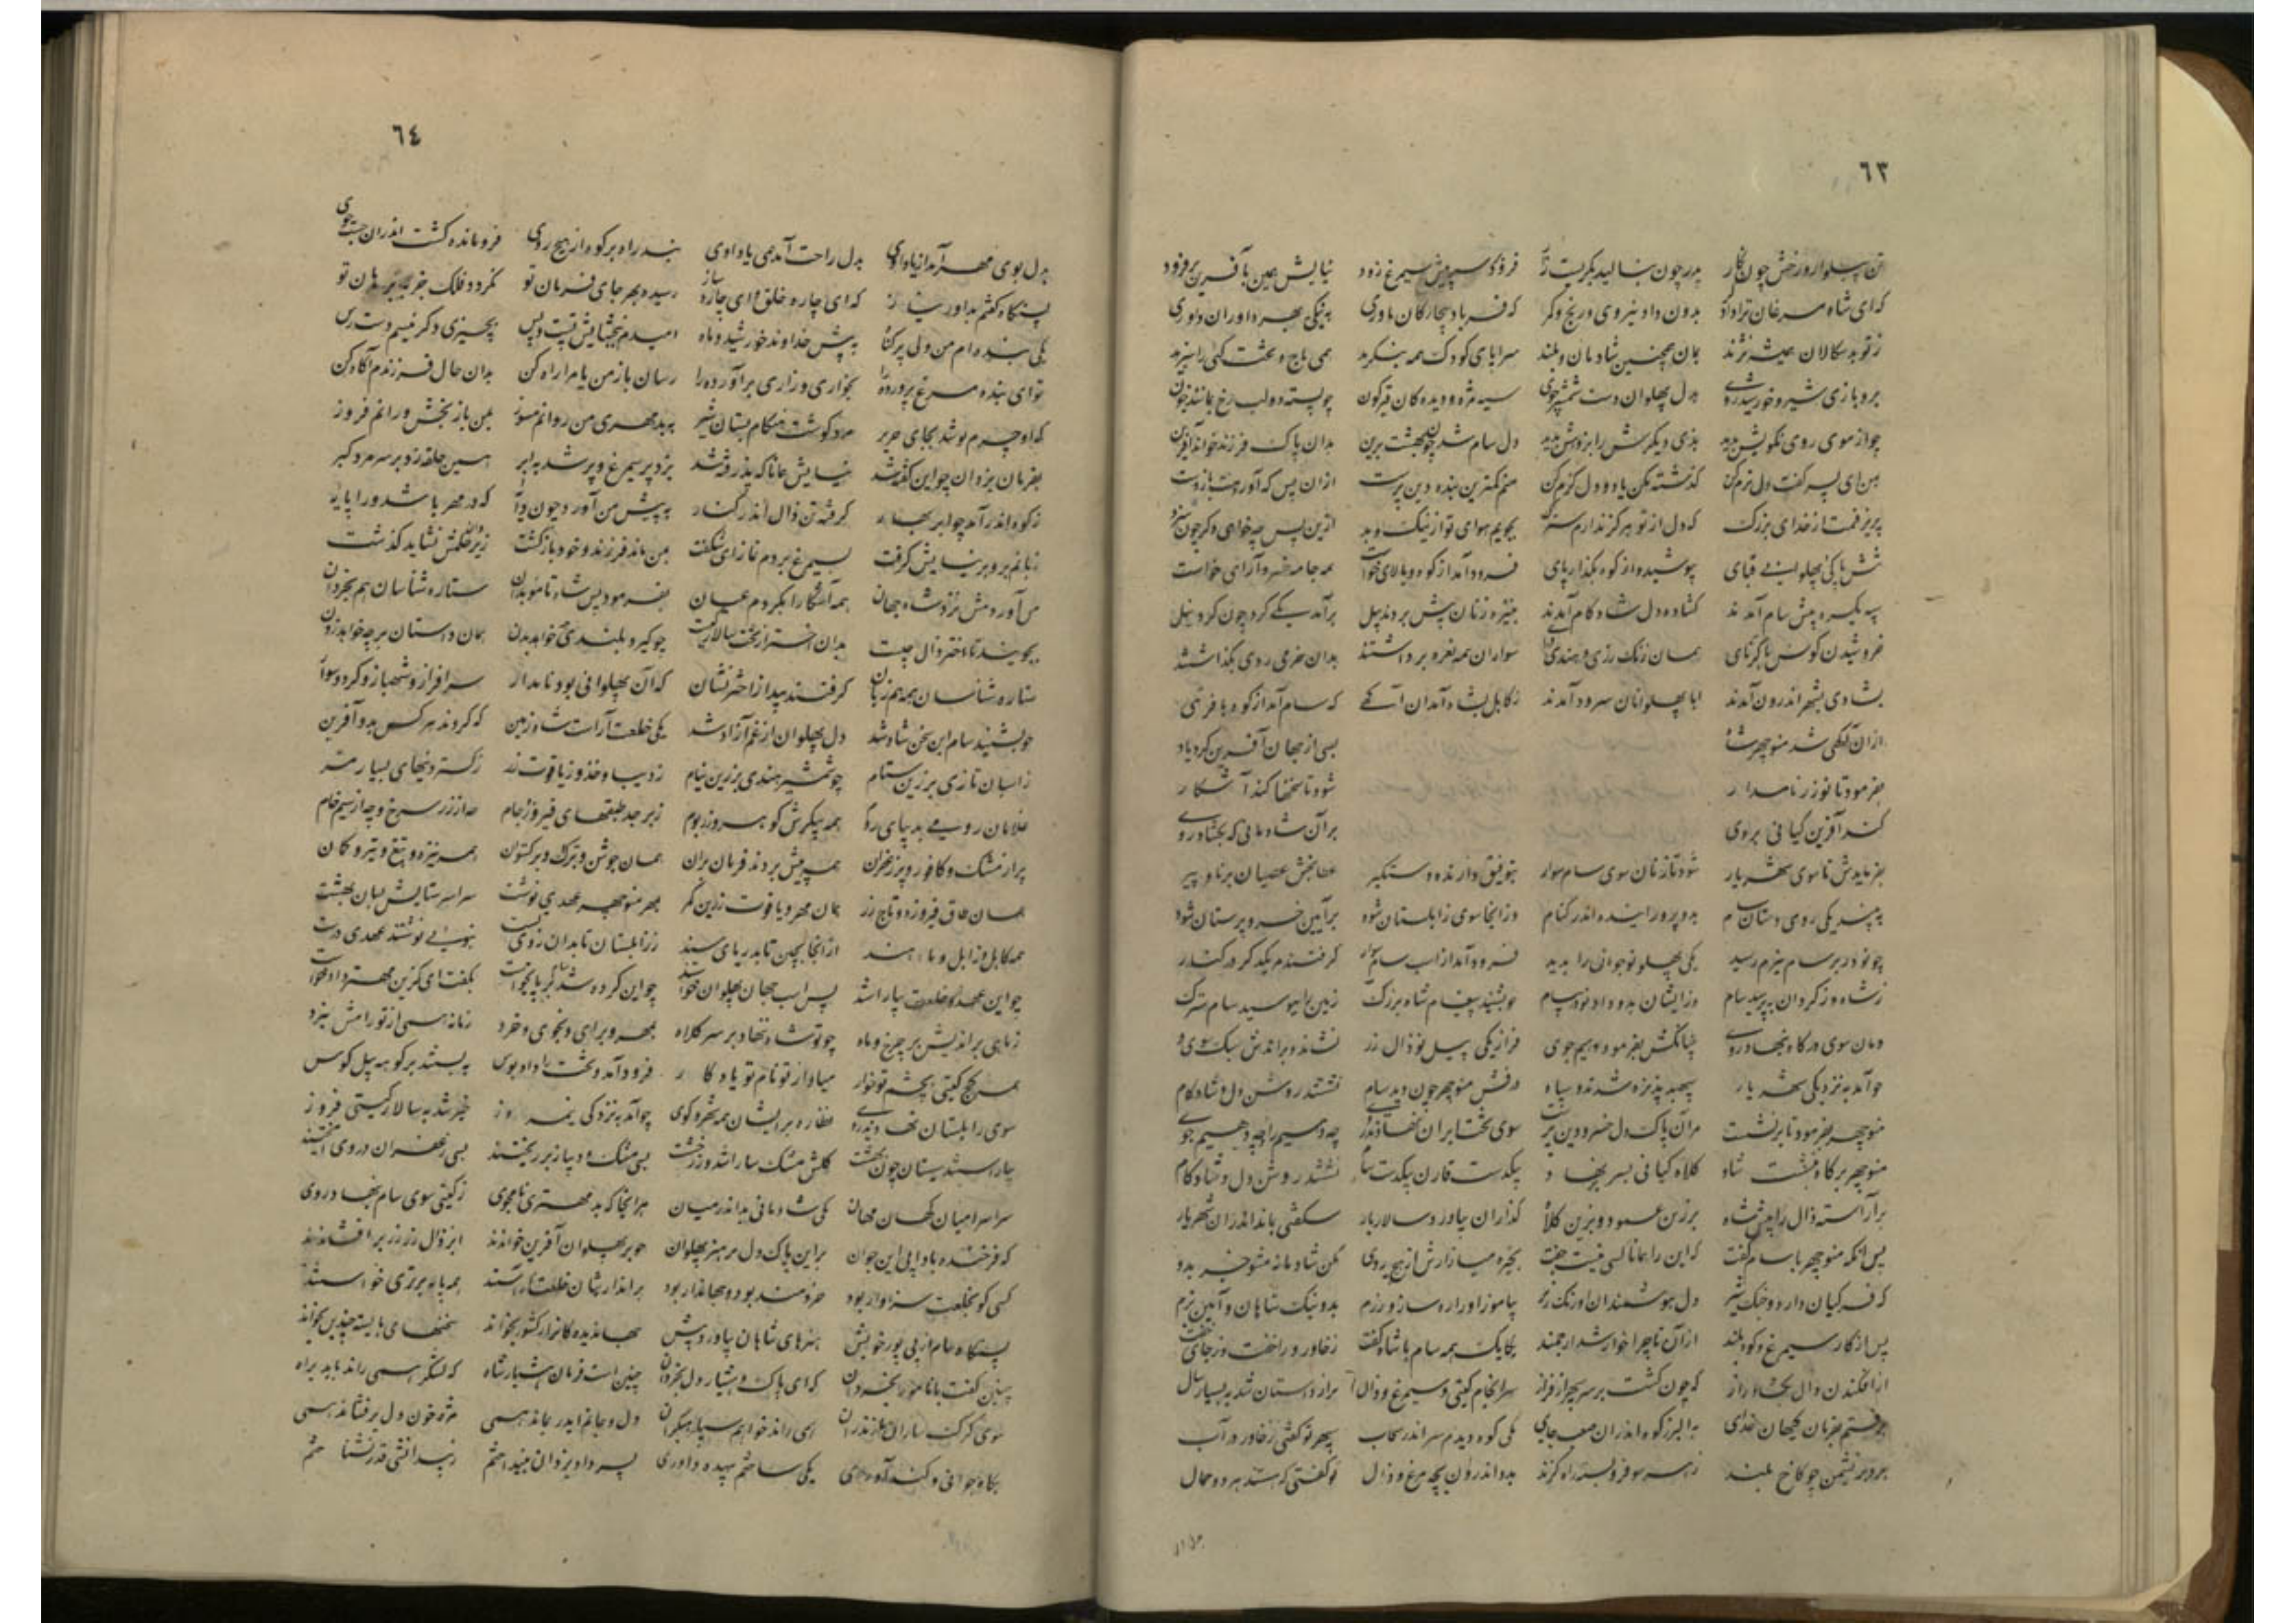 ٦٣
تن پیلوار و رخش چون نگار پدر چون بنالید بگریست زار فرو کرد سر پیش سیمرغ زود نیایش همی بآفرین برفزود
که ای شاه مرغان ترا دادگر بدون داد نیروی و رنج و کر که فریاد بیچارگان یاوری به نیکی بهر داوران داوری
ز تو بدسکالان همیشه نژند بمان همچنین شادمان و بلند سراپای کودک همه بنگرید همی تاج و تخت کئی را سزید
برو بازی شیر و خورشید روی دل پهلوان دست شمشیر جوی سیه مژه و دیدگان قیرگون چو بسته دو لب رخ بمانند خون
چو از موی روی نکویش ندید بدی دیگرش را بزدوش ندید دل سام شد چون بهشت برین بدان پاک فرزند خواند آفرین
بمن ای پسر گفت دل نرم کن گذشته مکن یاد و دل گرم کن منم کمترین بنده دین پرست ازان پس که آوردمت باز دست
پذیرفتم از خدای بزرک که دل از تو هرگز ندارم سترک بجویم هوای تو از نیک و بد ازین پس چه خواهی دگر چون سزد
تنش یکی پهلوانی قبای بپوشید و از کوه بگذارد پای فرود آمد از کوه و بالای خواست همه جامه خسرو آرای خواست
سپه یکسره پیش سام آمدند گشاده دل و شادکام آمدند تبیره زنان پیش بردند پیل برآمد یکی گرد چون کوه نیل
خروشیدن کوس با کرنای همان زنگ زرین و هندی درای سواران همه نعره برداشتند بدان خرمی روی بگذاشتند
بشادی بشهر اندرون آمدند ابا پهلوانان سرود آمدند ز کابل بشاه آمدان آگهی که سام آمد از کوه با فرهی
ازان آگهی شد منوچهر شاه بسی از جهان آفرین کرد یاد
بفرمود تا نوذر نامدار شود تا سخنها کند آشکار
کند آفرین کیانی بروی بر آن شادمانی که بگشاد روی
بفرمایدش تا سوی شهریار شود تازنان سوی سام سوار بتوفیق دارنده دستگیر
به بیند یکی روی دستان سام بدو پرورانیده اندر کنام وز آنجا سوی زابلستان شود بر آیین خسروپرستان شود
چو نوذر بر سام نیرم رسید یکی پهلو نوجوانی را بدید فرود آمد از اسب سام سوار گرفتند مر یکدگر در کنار
ز شاه و ز گردان بپرسید سام وز ایشان بدو داد نوذر پیام چو بشنید پیغام شاه بزرک زمین را ببوسید سام سترک
دمان سوی درگاه بنهاد روی چنانکش بفرمود دیهیم جوی فراز یکی پیل نو زال زر نشاند و براندش سبک سوی در
چو آمد به نزدیکی شهریار درفش منوچهر چون دید سام
منوچهر بفرمود تا برنشست مران پاک دل خسرو دین پرست سوی تخت ایران نهادند روی چه دیهیم دار چه دیهیم جوی
منوچهر بر گاه بنشست شاد کلاه کیانی بسر برنهاد بیکدست قارن بیکدست سام نشستند روشن دل و شادکام
بر آراسته زال را پیش شاه بزرین عمود و بزرین کلاه گذارن بیاورد سالار بار شگفتی بماند اندران شهریار
پس آنگه منوچهر با سام گفت که این را همانا کسی نیست جفت بخیره میازارش از هیچ روی مکن شادمانه مشو جز بدو
که فر کیان دارد و چنگ شیر دل هوشمندان و اورنگ پیر بیاموز او را ره ساز و رزم بدو نیک شاهان و آیین بزم
پس از کار سیمرغ و کوه بلند از آن تا چرا خوار شد ارجمند یکایک همه سام با شاه گفت ز خاور و راخفت و ز جای خفت
از افکندن زال بگشاد راز که چون گشت بر سر سپهر از فراز سرانجام گیتی و سیمرغ و زال پر از داستان شد به بسیار سال
برفتم بفرمان گیهان خدای به البرز کوه اندران صعب جای یکی کوه دیدم سر اندر سحاب سپهر تو گفتی ز خاور در آب
برو بر نشیمن چو کاخ بلند ز هر سو فرو بسته راه گزند بدو اندرون بچه مرغ و زال تو گفتی که هستند هر دو همال
٦٤
بدل بوی مهر آمد از یاد اوی بدل راحت آمد همی یاد اوی نبد راه بر کوه از هیچ روی فرومانده گشت اندران جستجوی
گفتم بداور نیاز که ای چاره خلق و ای چاره ساز رسیده بهر جای فرمان تو نگردد فلک جز بفرمان تو
یکی بنده ام من دلی پر گناه به پیش خداوند خورشید و ماه امیدم ببخشایش تست و بس بچیزی دگر نیستم دسترس
تو ای بنده مرغ پرورده را بخواری و زاری برآورده را رسان باز من یا مرا راه کن بدان حال فرزندم آگاه کن
که او چرم پوشد بجای حریر مزد گوشت هنگام پستان شیر به بد مهری من روانم مسوز بمن باز بخش و رانم فروز
بفرمان یزدان چو این گفته شد نیایش همانا که پذرفته شد بزد پر سیمرغ و بر شد به ابر همین حلقه زد بر سر مرد گبر
ز کوه اندر آمد چو ابر بهار گرفته تن زال اندر کنار به پیش من آورد چون دایه که در مهر باشد ورا پایه
زبانم برو بر نیایش گرفت بسیمرغ بردم نماز ای شگفت بمن ماند فرزند و خود بازگشت ز حکمش نشاید گذشت
من آوردمش نزد شاه جهان همه آشکارا بکردم عیان بفرمود پس شاه تا موبدان ستاره شناسان هم بخردان
بجویند تا اختر زال چیست بدان اختر از بخت سالار کیست چو گیرد بلندی چه خواهد بدن همان داستان بر چه خواهد زدن
ستاره شناسان همه هم زبان گرفتند پیدا ز اختر نشان که آن پهلوانی بود نامدار سرافراز و شهباز و گرد و سوار
چو بشنید سام این سخن شاد شد دل پهلوان از غم آزاد شد یکی خلعت آراست شاه زمین که کردند هر کس بدو آفرین
ز اسبان تازی بزرین ستام چو شمشیر هندی بزرین نیام ز دیبا و خز و ز یاقوت و زر ز گستردنیهای بسیار مر
غلامان رومی به دیبای روم همه پیکرش گوهر و زر بوم زبرجد طبقهای فیروزه جام چه از زر سرخ و چه از سیم خام
پر از مشک و کافور و پر زعفران همه پیش بردند فرمان بران همان جوشن و ترک و برگستوان همه نیزه و تیغ و تیر و کمان
همان طاق فیروزه و تاج زر همان مهر و یاقوت زرین کمر بهر منوچهر عهدی نوشت سراسر ستایش بسان بهشت
همه کابل و زابل و هند از آنجا بچین تا بدریای سند ز زابلستان تا بدان روی بست بنوی نوشتند عهدی درست
چو این عهد و خلعت بیاراستند پس اسب جهان پهلوان خواستند چو این کرده شد سام بر پای خاست بگفت ای گزین مهتر داد و راست
ز ماهی بر اندیش بر چرخ و ماه چو تو شاه ننهاد بر سر کلاه بمهر و برای و بخوی و خرد زمانه همی از تو رامش برد
همه گنج گیتی بچشم تو خوار مبادا ز تو نام تو یادگار فرود آمد و تخت را داد بوس ببستند بر کوهه پیل کوس
سوی زابلستان نهادند روی نظاره بر ایشان همه شهر و کوی چو آمد بنزدیکی نیمروز خبر شد به سالار گیتی فروز
بیاراسته سیستان چون بهشت گلش مشک سارا شد و زر خشت بسی مشک و دینار برریختند بسی زعفران در وی آمیختند
سراسر میان کهان و مهان یکی شادمانی بد اندر میان هر آنجا که بد مهتری نامجوی ز گیتی سوی سام بنهاد روی
که فرخنده باد پی این جوان بر این پاک دل مر هنر پهلوان چو بر پهلوان آفرین خواندند ابر زال زر زر برافشاندند
کسی کو بخلعت سزاوار بود خردمند بود و جهاندار بود بر اندازه شان خلعت آراستند همه پایه برتری خواستند
پس آنگاه سام از پی پور خویش هنرهای شاهان بیاورد پیش جهاندیده گان را ز کشور بخواند سخنهای بایسته چندین بخواند
چنین گفت با نامور بخردان که ای پاک و هشیار دل بخردان چنین است فرمان هشیار شاه که لشکر همی راند باید براه
سوی گرگساران مازندران همی راند خواهم سپاه گران دل و جانم ایدر بماند همی مژه خون دل برفشاند همی
بگاه جوانی و کندآوری یکی ساختم بیهده داوری پسر داد یزدان بینداختم ز بیدانشی قدر نشناختم